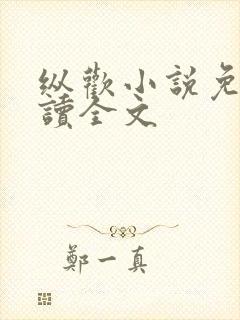 纵歡小説免
讀全文
鄭一真